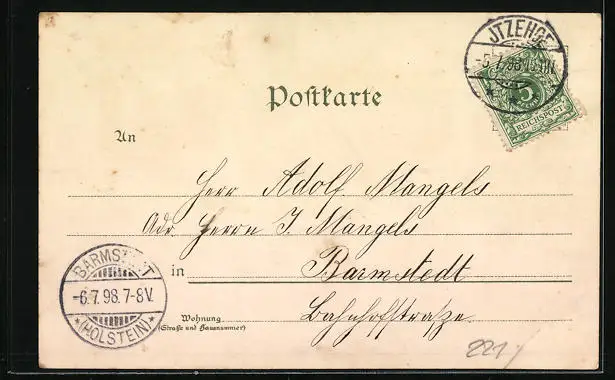 JTZEHOE
-5.7.98
5
REICHSPOST
Postkarte
An
Herr Adolf Mangels
Adr. Herrn J. Mangels
in Barmstedt
BARMSTEDT
-6.7.98.7-8V.
*(HOLSTEIN)*
Wohnung
(Straße und Hausnummer)
Bahnhofstraße.
221